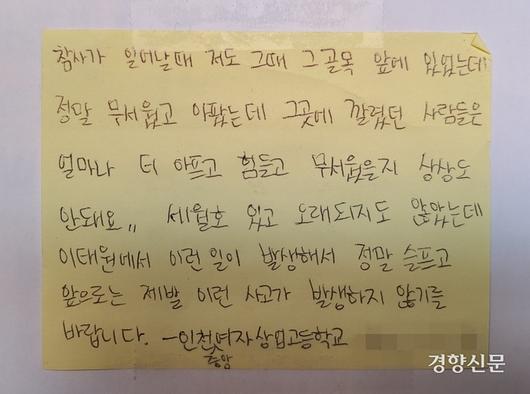 참사가 일어날때 저도 그때 그골목 앞에 있었는데
정말 무서웠고 아팠는데 그곳에 깔렸던 사람들은
얼마나 더 아프고 힘들고 무서웠을지 상상도
안돼요,, 세월호 있고 오래되지도 않았는데
이태원에서 이런 일이 발생해서 정말 슬프고
앞으로는 제발 이런 사고가 발생하지 않기를
바랍니다. -인천여자상업고등학교
중앙
경향신문